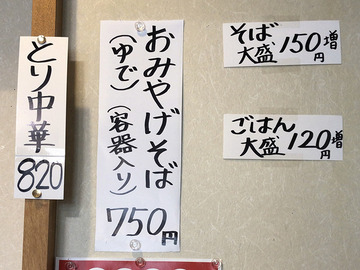 とり中華
820
おみやげそば
(ゆで)(容器入り)
750円
そば
大盛 150円増
ごはん
大盛 120円増